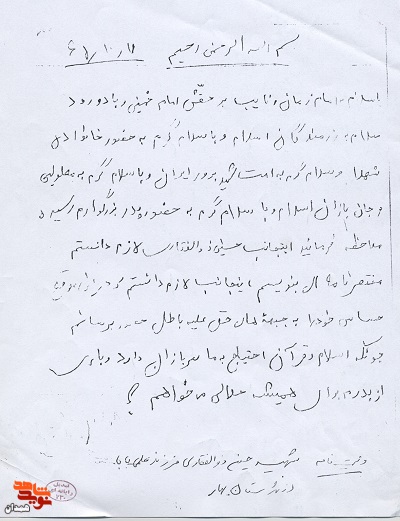 بسم الله الرحمن رحیم
با سلام به امام زمان و نایب بر حقش امام خمینی و با درود
سلام به رزمندگان اسلام و با سلام گرم به حضور خانواده‌ی
شهدا و سلام گرم به امت شهید پرور ایران و با سلام گرم به معلولین
و جان بازان اسلام و با سلام گرم به حضور پدر بزرگوارم رسیده
ملاحظه فرمائید اینجانب حسین ذوالفقاری لازم دانستم
مختصر نامه ای بنویسم اینجانب لازم دانستم که در این موقع
حساس خود را به جبهه های حق علیه باطل برسانم
چونکه اسلام و قرآن احتیاج به ما سربازان دارد و برای
از پدرم برای همیشه حلالی می خواهم
وصیت نامه شهید حسین ذوالفقاری فرزند علی بابا
نوید شاهد